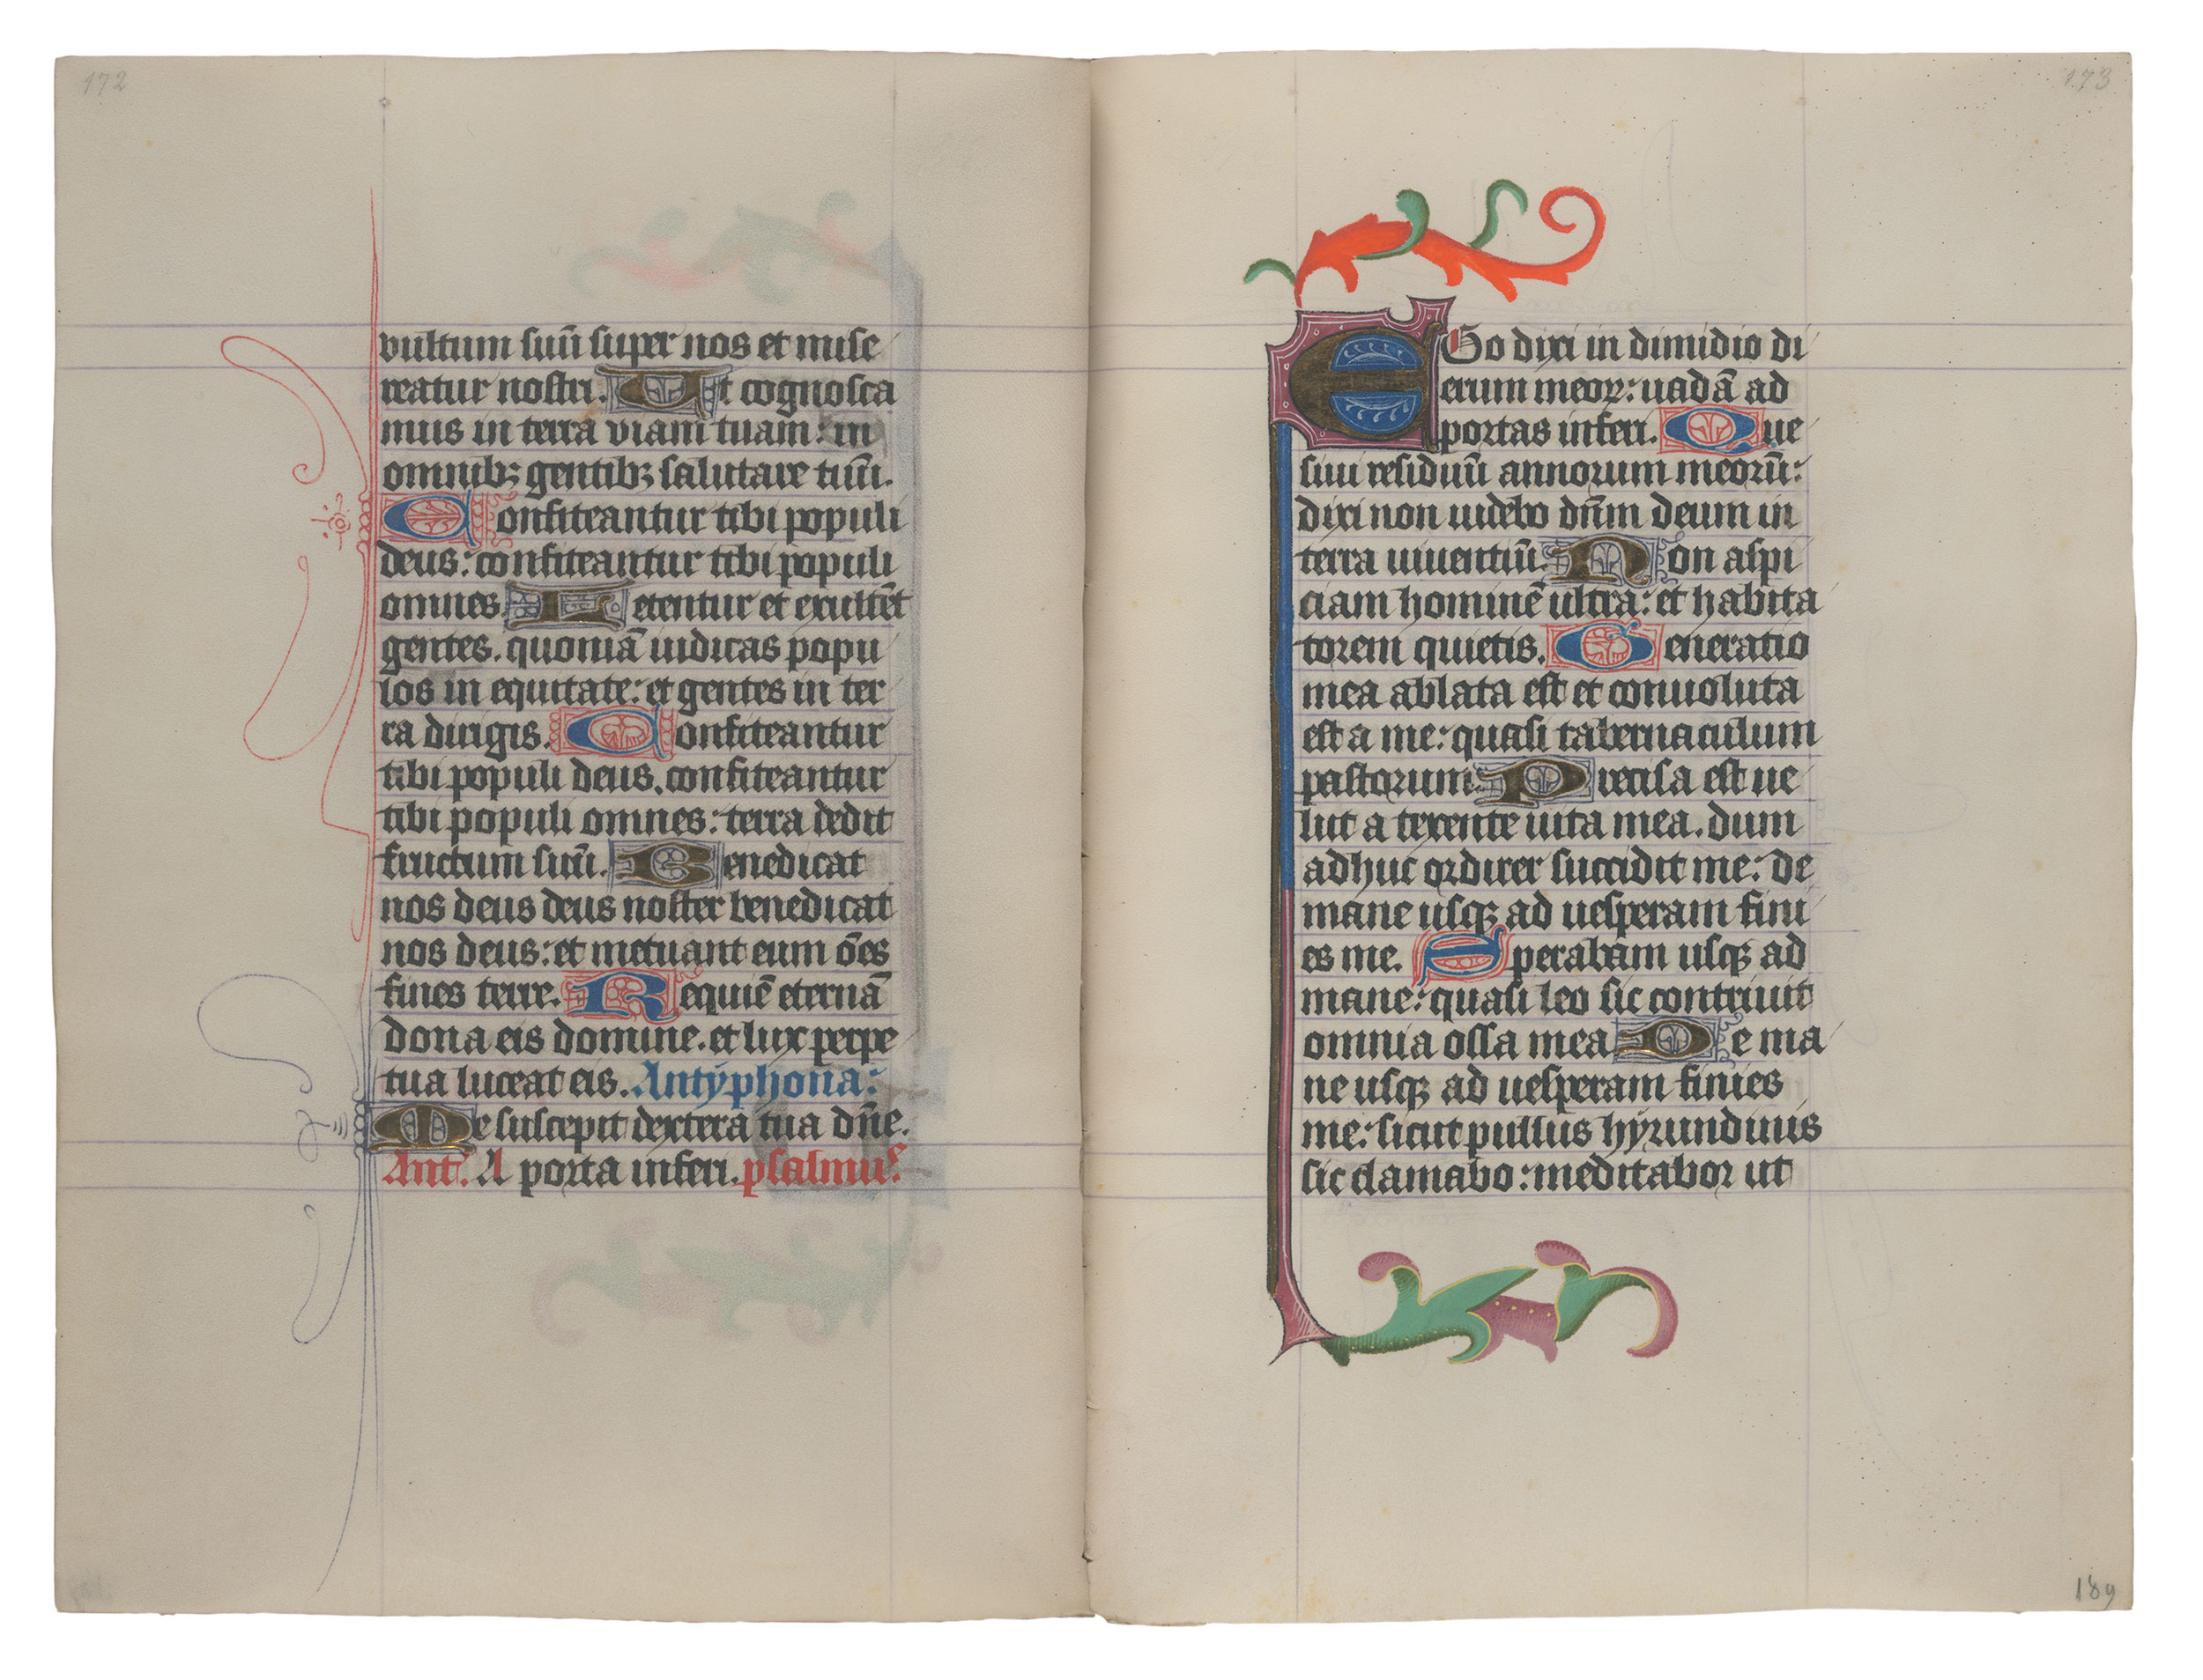 172
vultum suū super nos et mise
reatur nostri. Ut cognosca
mus in terra viam tuam: in
omnibꝫ gentibꝫ salutare tuū.
Confiteantur tibi populi
deus: confiteantur tibi populi
omnes. Letentur et exultēt
gentes. quoniā iudicas popu
los in equitate: et gentes in ter
ra dirigis. Confiteantur
tibi populi deus. confiteantur
tibi populi omnes: terra dedit
fructum suū. Benedicat
nos deus deus noster benedicat
nos deus: et metuant eum ōes
fines terre. Requiē eternā
dona eis domine. et lux perpe
tua luceat eis. Antyphona:
Me suscepit dextera tua dn̄e.
Ant. A porta inferi. psalmus.
173
EGo dixi in dimidio di
erum meoꝝ: uadā ad
portas inferi. Que
siui residuū annorum meorū:
dixi non uidebo dn̄m deum in
terra uiuentiū. Non aspi
ciam hominē ultra: et habita
torem quietis. Generatio
mea ablata est et conuoluta
est a me: quasi tabernaculum
pastorum. Precisa est ue
lut a texente uita mea. dum
adhuc ordirer succidit me: de
mane usqꝫ ad uesperam fini
es me. Sperabam usqꝫ ad
mane: quasi leo sic contriuit
omnia ossa mea De ma
ne usqꝫ ad uesperam finies
me: sicut pullus hyrundinis
sic clamabo: meditabor ut
189